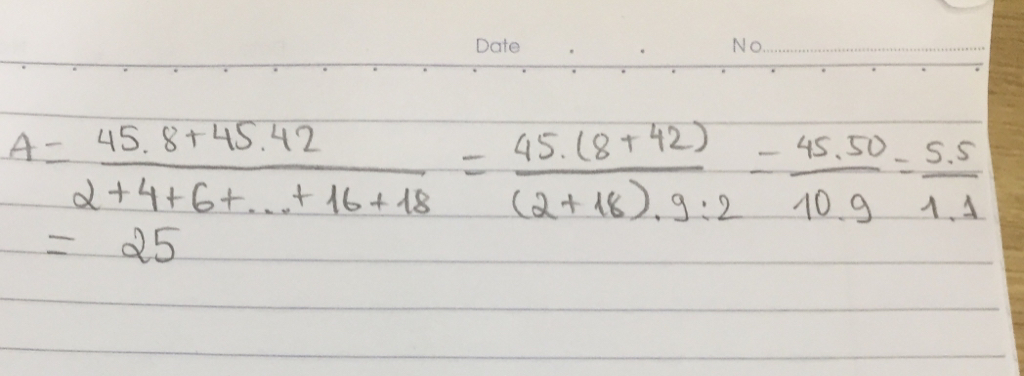 Date . . No.
A = (45.8+45.42)/(2+4+6+...+16+18) = (45.(8+42))/((2+18).9:2) = (45.50)/(10.9) = (5.5)/(1.1)
= 25